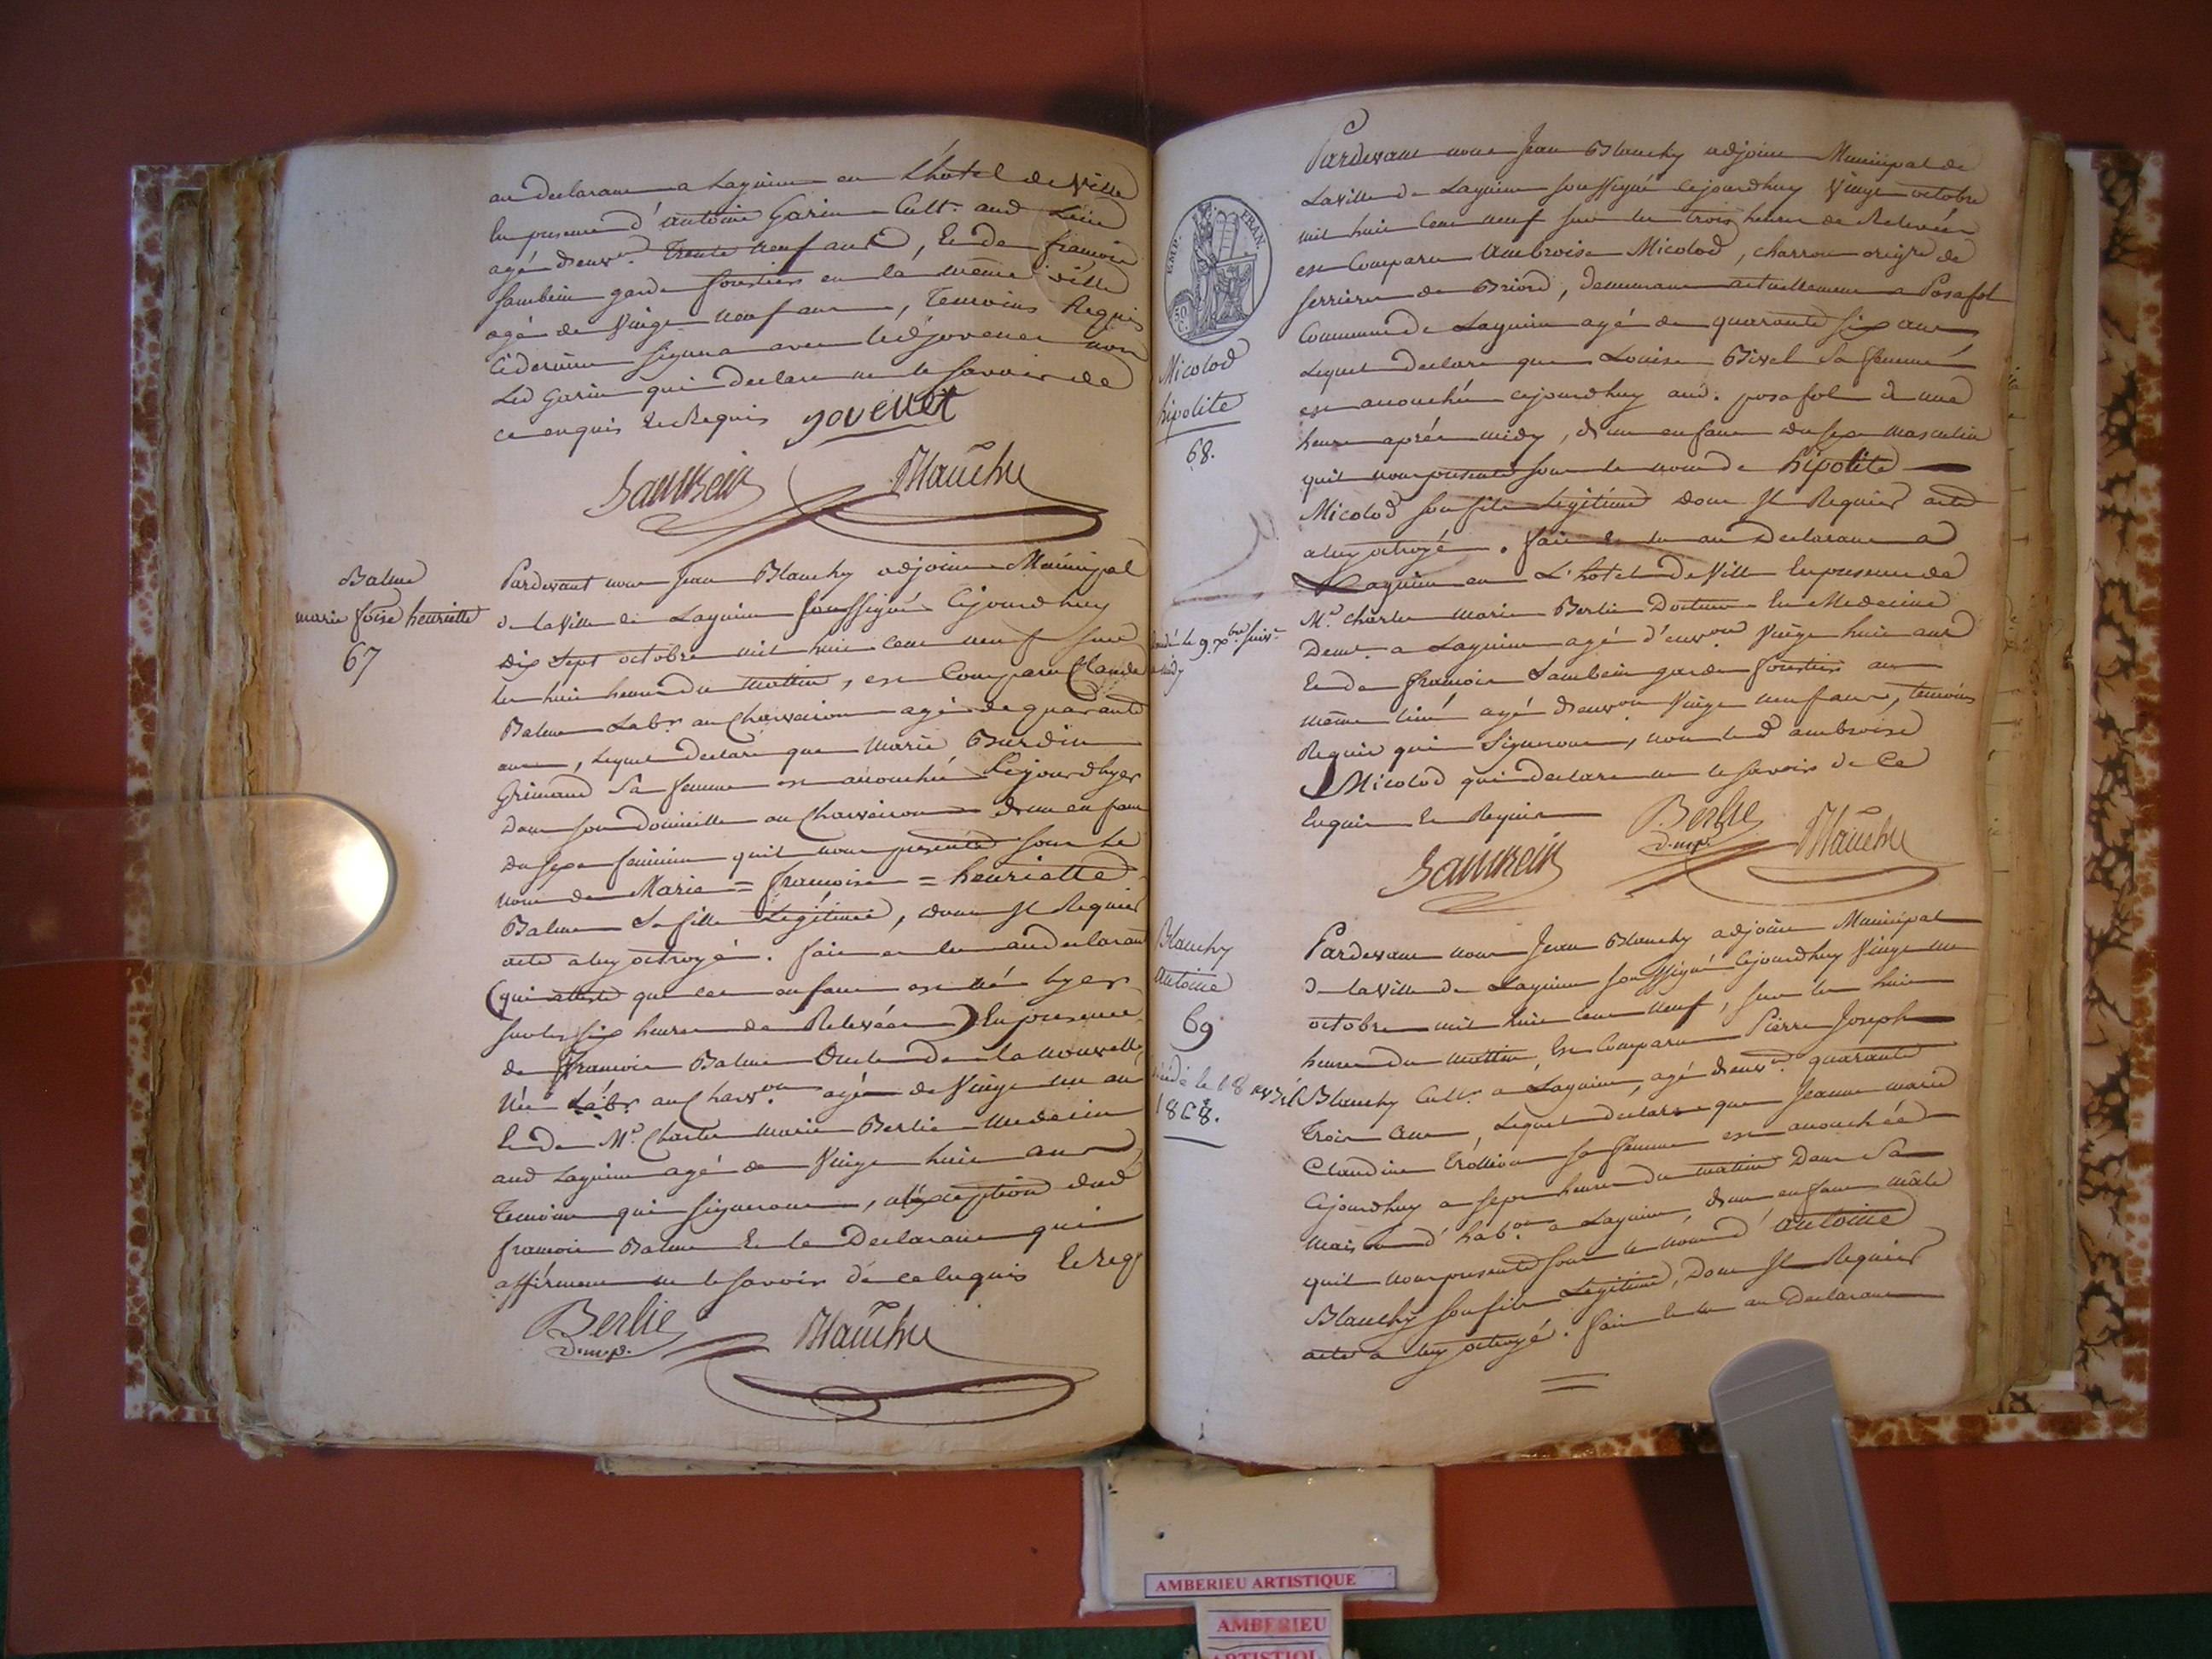 au declarant a Lagnieu en L'hotel de Ville
En presence d'antoine Garin Cult. aud Lieu
agé d'env.on Trente neuf ans, Et de francois
Sambein garde forestier en la même ville
agé de Vingt neuf ans, Temoins Requis
Ce dernier signera avec led jovenet non
Led Garin qui declare ne le savoir de
ce enquis Et Requis jovenet
Sambein Blanchy
Balme
marie foise henriette
67
Pardevant nous Jean Blanchy adjoint Municipal
de la Ville de Lagnieu soussigné Cejourdhuy
Dix Sept octobre mil huit cent neuf sur
les huit heures du mattin, est Comparu Claude
Balme Labr. au Charveiron agé de quarante
ans, Lequel declare que Marie Burdin
Grimand Sa femme est accouchée Lejourdhyer
Dans son domicille au Charveiron d'un enfant
du sexe feminin quil nous presente sous le
nom de Marie = francoise = henriette
Balme Sa fille Legitime, dont Il Requier
acte a luy octroyé. fait et lu au declarant
(qui atteste que cet enfant est né hyer
sur les six heures de Relevée) En presence
de francois Balme Oncle de la nouvelle
Née Labr. au Charv.on agé de Vingt un an
Et de Mr. Charles Marie Berlie Medecin
aud Lagnieu agé de Vingt huit ans
Temoins qui signeront, a l'exception dud
francois Balme Et le Declarant qui
affirment ne le savoir de ce Enquis Et reqs
Berlie
d.m.p.
Blanchy
EMP. FRAN.
50
C.
Micolod
hipolite
68.
Pardevant nous Jean Blanchy adjoint Municipal de
La Ville de Lagnieu soussigné Cejourdhuy Vingt octobre
mil huit Cent neuf sur les trois heures de Relevée
est Comparu Ambroise Micolod, charron origre de
Serrieres de Briord, demeurant actuellement a Posafol
Commune de Lagnieu agé de quarante six ans
Lequel declare que Louise Bivel Sa femme
est accouchée cejourdhuy aud. posafol a une
heure après midy, d'un enfant du sexe masculin
quil nous presente sous le nom de hipolite
Micolod son fils Legitime dont Il Requier acte
a luy octroyé. fait et lu au Declarant a
Lagnieu en L'hotel de Ville En presence de
Mr. charles marie Berlie Docteur En Medecine
Demt. a Lagnieu agé d'env.on Vingt huit ans
Et de francois Sambein garde forestier au
même lieu agé d'env.on Vingt neuf ans, temoins
Requis qui Signeront, non led ambroise
Micolod qui declare ne le savoir de Ce
Enquis Et Requis
Berlie
d.m.p.
Sambein Blanchy
le 9. xbre suivt
Blanchy
antoine
69
le 18 avril
1868.
Pardevant nous Jean Blanchy adjoint Municipal
de la Ville de Lagnieu soussigné Cejourdhuy Vingt un
octobre mil huit cent neuf, sur les huit
heures du mattin Est Comparu Pierre Joseph
Blanchy Cult. a Lagnieu, agé d'env.on quarante
Trois Ans, Lequel declare que Jeanne marie
Claudine Trollion sa femme est accouchée
Cejourdhuy a sept heures du mattin Dans Sa
maison d'hab.on a Lagnieu, d'un enfant mâle
quil nous presente sous le nom d'antoine
Blanchy son fils Legitime, Dont Il Requier
acte a luy octroyé. fait Et lu au Declarant
AMBERIEU ARTISTIQUE
AMBERIEU